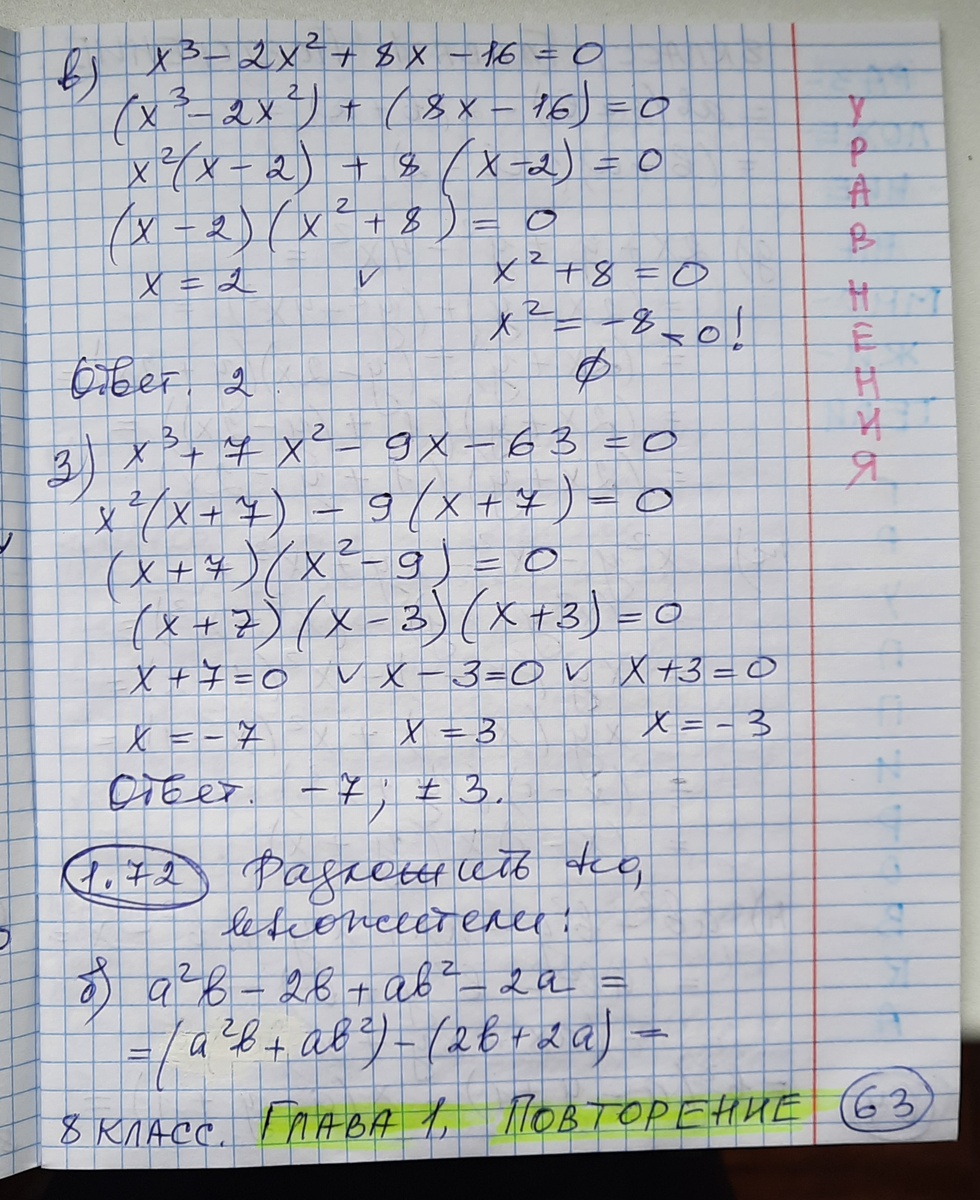 в) x³ − 2x² + 8x − 16 = 0
(x³ − 2x²) + (8x − 16) = 0
x²(x − 2) + 8(x − 2) = 0
(x − 2)(x² + 8) = 0
x = 2 ∨ x² + 8 = 0
x² = −8 < 0!
Ответ. 2. ∅
з) x³ + 7x² − 9x − 63 = 0
x²(x + 7) − 9(x + 7) = 0
(x + 7)(x² − 9) = 0
(x + 7)(x − 3)(x + 3) = 0
x + 7 = 0 ∨ x − 3 = 0 ∨ x + 3 = 0
x = −7 x = 3 x = −3
Ответ. −7; ±3.
1.72 Разложить на
множители:
б) a²b − 2b + ab² − 2a =
= (a²b + ab²) − (2b + 2a) =
8 КЛАСС. ГЛАВА 1. ПОВТОРЕНИЕ 63
УРАВНЕНИЯ